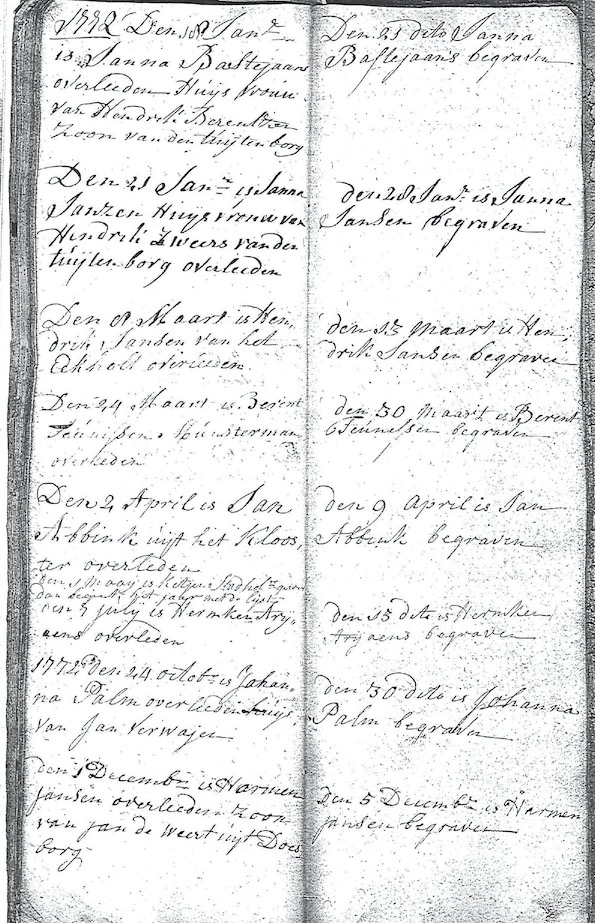 1772 Den 18 Janr
is Janna Bastejaans
overleeden Huijs vrouw
van Hendrik Berentzen
zoon van den tuijtenborg
Den 21 Janr is Janna
Janzen Huijsvrouw van
Hendrik Zweers van den
tuijtenborg overleeden
Den 8 Maart is Hen,
drik Jansen van het
Eckholt overleeden
Den 24 Maart is Berent
Teunissen Munsterman
overleden
Den 2 April is Jan
Abbink uijt het Kloos,
ter overleden
Den 1 Maaij is
dan
den 5 july is Hermken Ary,
aens overleden
1772 den 24 octobr is Johan,
na Palm overleeden huijs,
van Jan Verwajen
den 1 Decembr is Harmen
jansen overleeden zoon
van jan de weert uijt Does
borg
Den 25 dito is Janna
Bastejaans begraven
den 28 Janr is Janna
Jansen begraven
den 13 maart is Hen,
drik Jansen begraven
den 30 Maart is Berent
Teunessen begraven
den 9 April is Jan
Abbink begraven
den 13 dito is Hermken
Aryaens begraven
den 30 dito is Johanna
Palm begraven
Den 5 Decembr is Harmen
jansen begraven